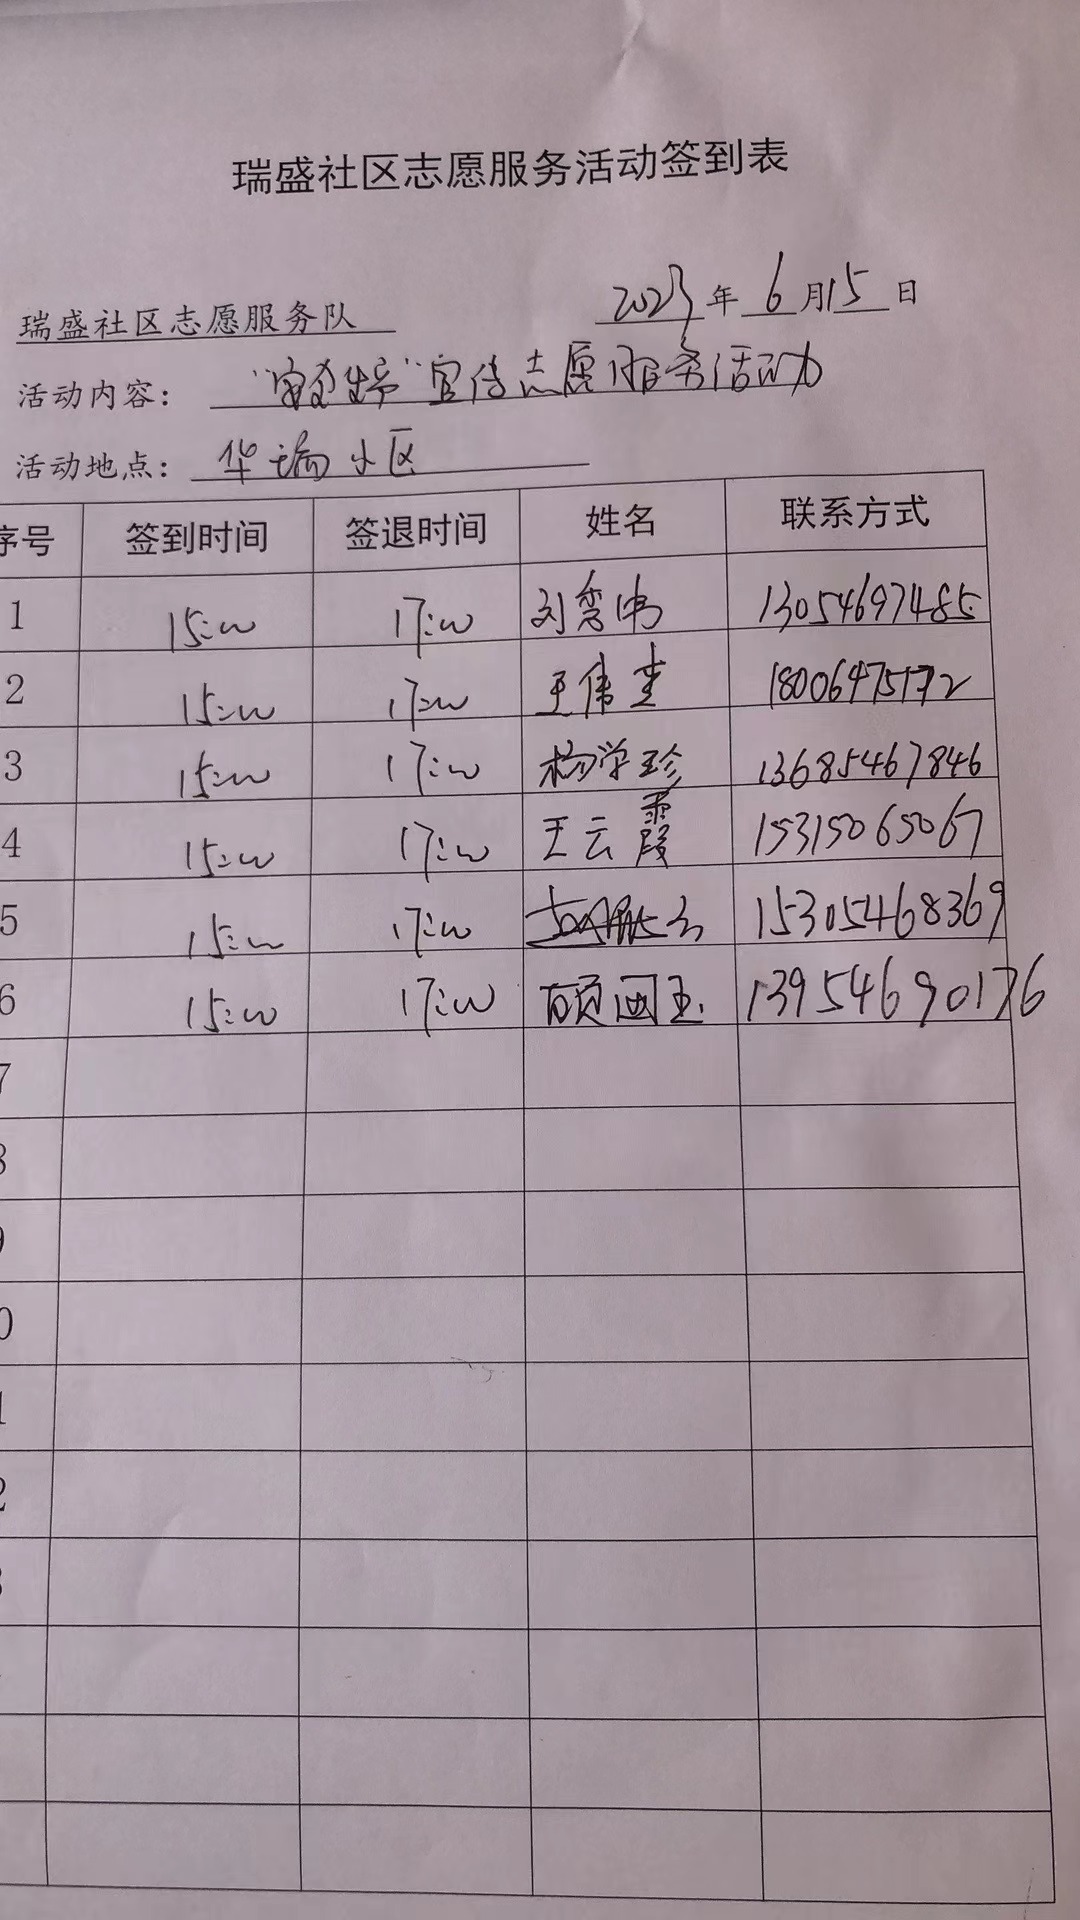 瑞盛社区志愿服务活动签到表
瑞盛社区志愿服务队 2023年6月15日
活动内容: 宣传志愿服务活动
活动地点: 华瑞小区
序号 签到时间 签退时间 姓名 联系方式
1 15:00 17:00 刘秀伟 13054697485
2 15:00 17:00 王伟 18006475172
3 15:00 17:00 杨学珍 13685467846
4 15:00 17:00 王云霞 15315065067
5 15:00 17:00 15305468369
6 15:00 17:00 顾国玉 13954690176
7
8
9
0
1
2
3